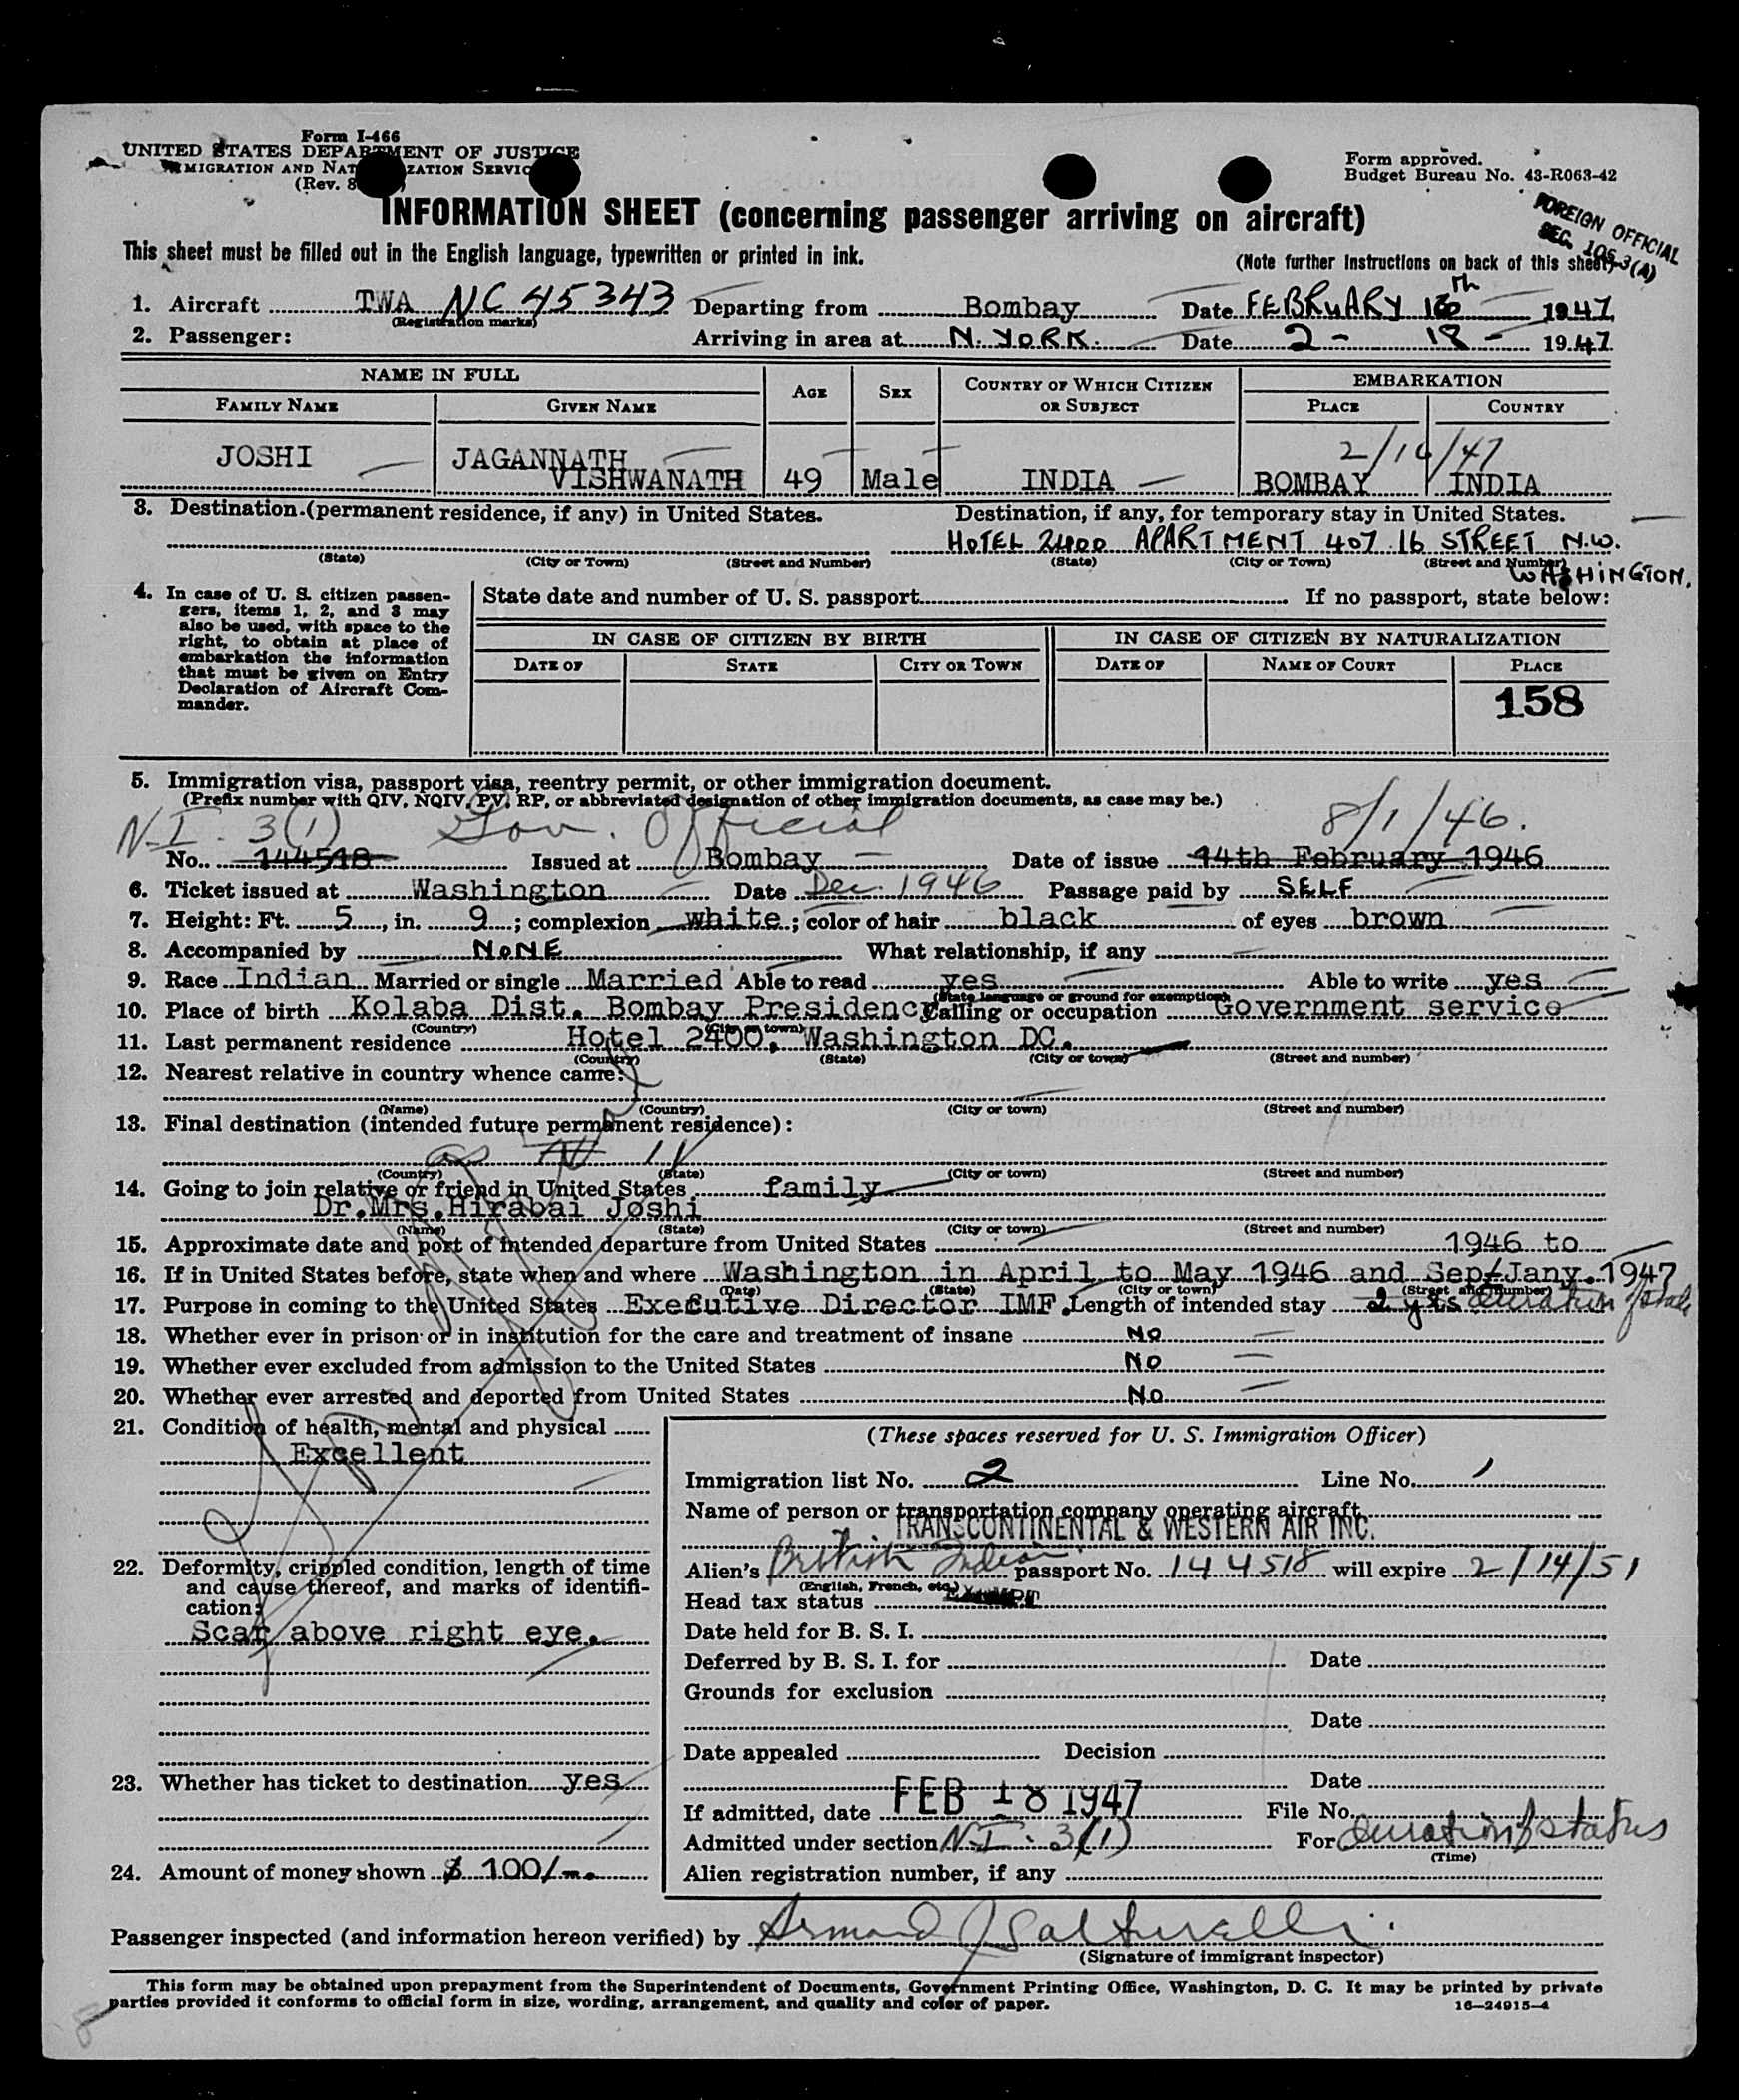 Form I-466
UNITED STATES DEPARTMENT OF JUSTICE
IMMIGRATION AND NATURALIZATION SERVICE
(Rev. 8
Form approved.
Budget Bureau No. 43-R063-42
FOREIGN OFFICIAL
SEC. 105-3(A)
INFORMATION SHEET (concerning passenger arriving on aircraft)
This sheet must be filled out in the English language, typewritten or printed in ink.
(Note further instructions on back of this sheet)
1. Aircraft TWA NC 45343 Departing from Bombay Date FEBRUARY 16th 1947
(Registration marks)
2. Passenger: Arriving in area at N. YORK. Date 2 - 18 - 1947
NAME IN FULL AGE SEX COUNTRY OF WHICH CITIZEN OR SUBJECT EMBARKATION
FAMILY NAME GIVEN NAME PLACE COUNTRY
2/16/47
JOSHI JAGANNATH VISHWANATH 49 Male INDIA BOMBAY INDIA
3. Destination (permanent residence, if any) in United States. Destination, if any, for temporary stay in United States.
HOTEL 2400 APARTMENT 407 16 STREET N.W.
(State) (City or Town) (Street and Number) (State) (City or Town) (Street and Number)
WASHINGTON.
4. In case of U. S. citizen passengers, items 1, 2, and 3 may also be used, with space to the right, to obtain at place of embarkation the information that must be given on Entry Declaration of Aircraft Commander.
State date and number of U. S. passport If no passport, state below:
IN CASE OF CITIZEN BY BIRTH IN CASE OF CITIZEN BY NATURALIZATION
DATE OF STATE CITY OR TOWN DATE OF NAME OF COURT PLACE
158
5. Immigration visa, passport visa, reentry permit, or other immigration document.
(Prefix number with QIV, NQIV, PV, RP, or abbreviated designation of other immigration documents, as case may be.)
N.I. 3(1) Gov. Official 8/1/46.
No. 144518 Issued at Bombay Date of issue 14th February 1946
6. Ticket issued at Washington Date Dec. 1946 Passage paid by SELF
7. Height: Ft. 5, in. 9; complexion white; color of hair black of eyes brown
8. Accompanied by NONE What relationship, if any
9. Race Indian Married or single Married Able to read yes Able to write yes
(State language or ground for exemption)
10. Place of birth Kolaba Dist. Bombay Presidency Calling or occupation Government service
(Country) (City or town)
11. Last permanent residence Hotel 2400, Washington DC.
(Country) (State) (City or town) (Street and number)
12. Nearest relative in country whence came:
(Name) (Country) (City or town) (Street and number)
13. Final destination (intended future permanent residence):
as 11
(Country) (State) (City or town) (Street and number)
14. Going to join relative or friend in United States family
Dr.Mrs.Hirabai Joshi
(Name) (State) (City or town) (Street and number)
15. Approximate date and port of intended departure from United States
1946 to
16. If in United States before, state when and where Washington in April to May 1946 and Sep/Jany. 1947
(Date) (State) (City or town) (Street and number)
17. Purpose in coming to the United States Executive Director IMF. Length of intended stay 2 yrs duration of status
18. Whether ever in prison or in institution for the care and treatment of insane No
19. Whether ever excluded from admission to the United States No
20. Whether ever arrested and deported from United States No
21. Condition of health, mental and physical
Excellent
22. Deformity, crippled condition, length of time and cause thereof, and marks of identification:
Scar above right eye.
23. Whether has ticket to destination yes
24. Amount of money shown $ 100/-
(These spaces reserved for U. S. Immigration Officer)
Immigration list No. 2 Line No. 1
Name of person or transportation company operating aircraft
TRANSCONTINENTAL & WESTERN AIR INC.
Alien's British Indian passport No. 144518 will expire 2/14/51
(English, French, etc.)
Head tax status
Date held for B. S. I.
Deferred by B. S. I. for Date
Grounds for exclusion
Date
Date appealed Decision
Date
If admitted, date FEB 18 1947 File No.
Admitted under section N.I. 3(1) For duration of status
(Time)
Alien registration number, if any
Passenger inspected (and information hereon verified) by
(Signature of immigrant inspector)
This form may be obtained upon prepayment from the Superintendent of Documents, Government Printing Office, Washington, D. C. It may be printed by private
parties provided it conforms to official form in size, wording, arrangement, and quality and color of paper. 16—24915-4
8